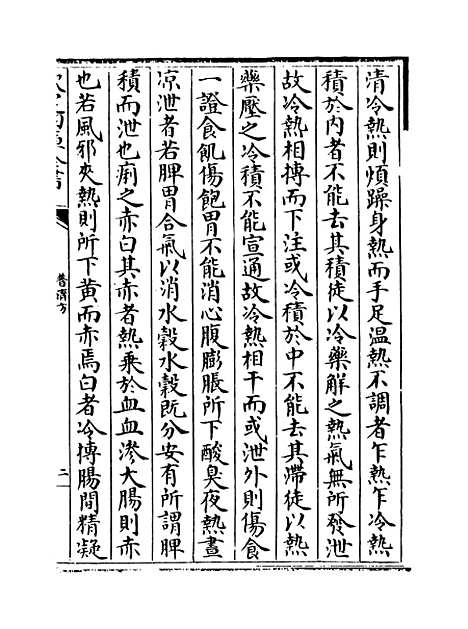 清冷熱則煩躁身熱而手足温熱不調者乍熱乍冷熱
積於内者不能去其積徒以冷藥解之熱氣無所發泄
故冷熱相搏而下注或冷積於中不能去其滯徒以熱
藥壓之冷積不能宣通故冷熱相干而或泄外則傷食
一證食飢傷飽胃不能消心腹膨脹所下酸臭夜熱晝
凉泄者若脾胃合氣以消水穀水穀既分安有所謂脾
積而泄也痢之赤白其赤者熱乘於血血滲大腸則赤
也若風邪夾熱則所下黄而赤焉白者冷搏腸間精凝
普濟方
二